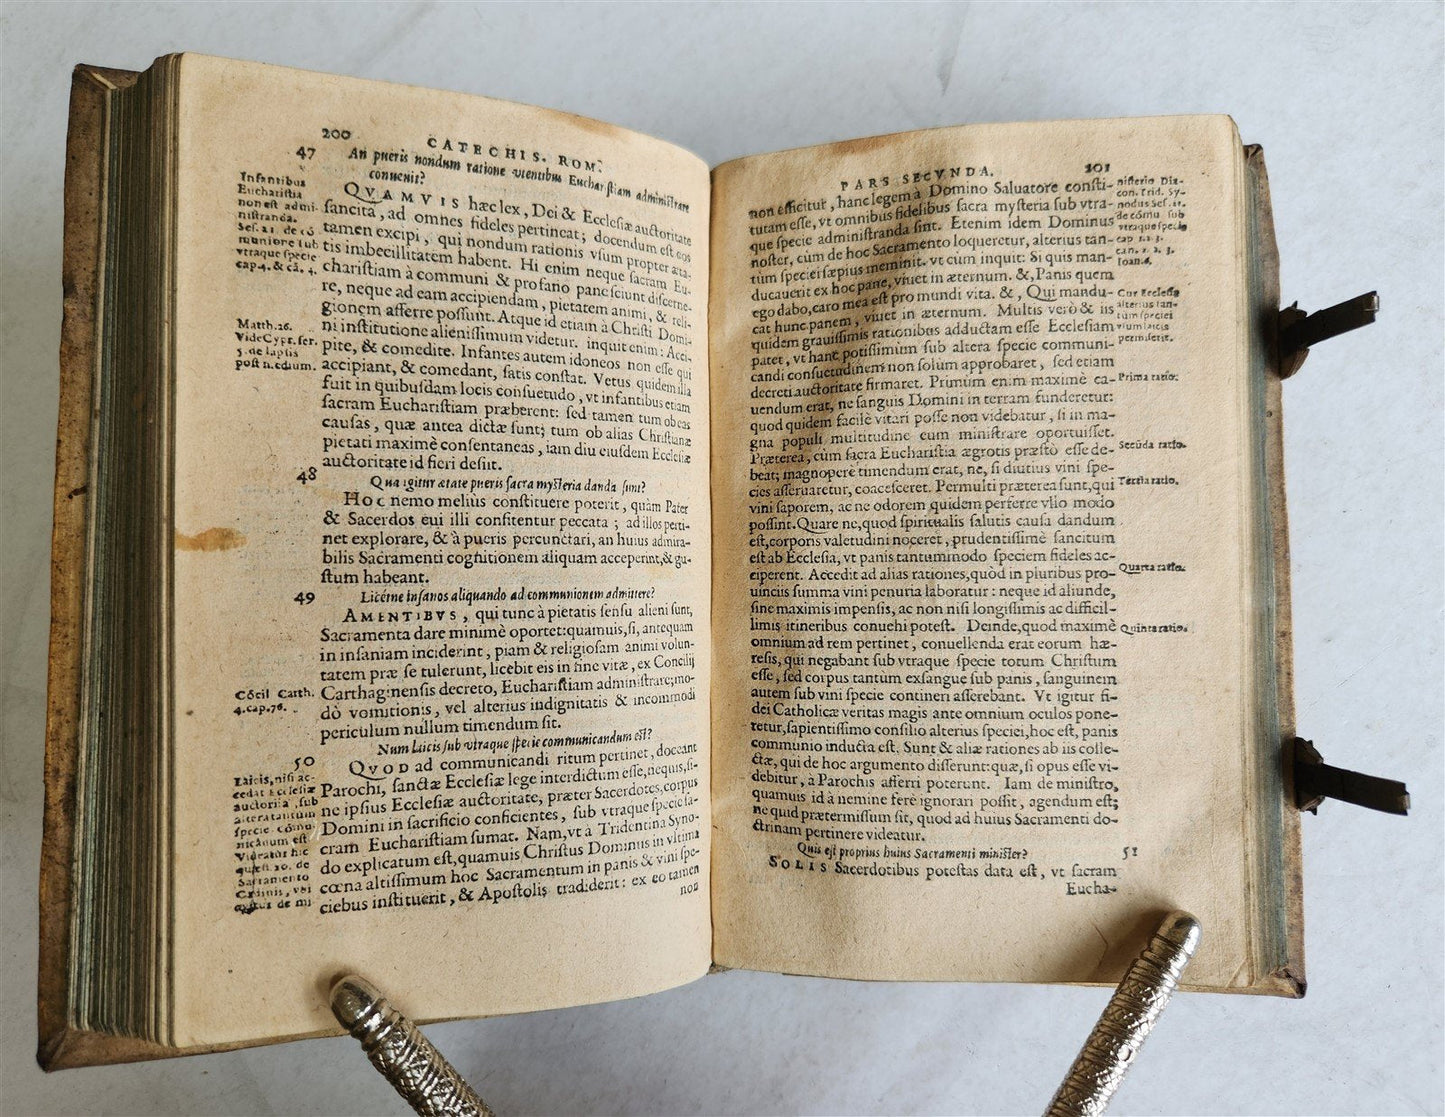 200 CATECHIS. ROM.
47 An pueris nondum ratione vtentibus Eucharistiam administrare
conuenit?
Infantibus
Eucharistia
non est admi-
nistranda.
Ses. 21. de cõ
muniore sub
vtraque specie
cap. 4. & cã. 4.
QVAMVIS hæc lex, Dei & Ecclesiæ auctoritate
sancita, ad omnes fideles pertineat; docendum est eos
tamen excipi, qui nondum rationis vsum propter æta-
tis imbecillitatem habent. Hi enim neque sacram Eu-
charistiam à communi & profano pane sciunt discerne-
re, neque ad eam accipiendam, pietatem animi, & reli-
gionem afferre possunt. Atque id etiam à Christi Domi-
ni institutione alienissimum videtur. inquit enim: Acci-
pite, & comedite. Infantes autem idoneos non esse qui
accipiant, & comedant, satis constat. Vetus quidem illa
fuit in quibusdam locis consuetudo, vt infantibus etiam
sacram Eucharistiam præberent: sed tamen tum ob eas
causas, quæ antea dictæ sunt; tum ob alias Christianæ
pietati maximè consentaneas, iam diu eiusdem Ecclesiæ
auctoritate id fieri desiit.
Matth. 26.
Vide Cypr. ser.
5. de lapsis
post medium.
48 Qua igitur ætate pueris sacra mysteria danda sint?
Hoc nemo meliùs constituere poterit, quàm Pater
& Sacerdos cui illi confitentur peccata; ad illos perti-
net explorare, & à pueris percunctari, an huius admira-
bilis Sacramenti cognitionem aliquam acceperint, & gu-
stum habeant.
49 Licetne insanos aliquando ad communionem admittere?
AMENTIBVS, qui tunc à pietatis sensu alieni sunt,
Sacramenta dare minimè oportet: quamuis, si, antequam
in insaniam inciderint, piam & religiosam animi volun-
tatem præ se tulerunt, licebit eis in fine vitæ, ex Concilij
Carthaginensis decreto, Eucharistiam administrare; mo-
dò vomitionis, vel alterius indignitatis & incommodi
periculum nullum timendum sit.
Cõcil Carth.
4. cap. 76.
Num laicis sub vtraque specie communicandum est?
50
Laicis, nisi ac-
cedat Ecclesiæ
auctorita, sub
altera tantum
specie cõmu-
nicandum est
QVOD ad communicandi ritum pertinet, doceant
Parochi, sanctæ Ecclesiæ lege interdictum esse, nequis, si-
ne ipsius Ecclesiæ auctoritate, præter Sacerdotes, corpus
Domini in sacrificio conficientes, sub vtraque specie sa-
cram Eucharistiam sumat. Nam, vt à Tridentina Syno-
do explicatum est, quamuis Christus Dominus in vltima
cœna altissimum hoc Sacramentum in panis & vini spe-
ciebus instituerit, & Apostolis tradiderit: ex eo tamen
non
PARS SECVNDA. 201
non efficitur, hanc legem à Domino Saluatore consti-
tutam esse, vt omnibus fidelibus sacra mysteria sub vtra-
que specie administranda sint. Etenim idem Dominus
noster, cùm de hoc Sacramento loqueretur, alterius tan-
tùm speciei sæpius meminit. vt cùm inquit: Si quis man-
ducauerit ex hoc pane, viuet in æternum. &, Panis quem
ego dabo, caro mea est pro mundi vita. &, Qui mandu-
cat hunc panem, viuet in æternum. Multis verò & iis
quidem grauissimis rationibus adductam esse Ecclesiam
patet, vt hanc potissimùm sub altera specie communi-
candi consuetudinem non solùm approbaret, sed etiam
decreti auctoritate firmaret. Primùm enim maximè ca-
uendum erat, ne sanguis Domini in terram funderetur:
quod quidem facilè vitari posse non videbatur, si in ma-
gna populi multitudine eum ministrare oportuisset.
Præterea, cùm sacra Eucharistia ægrotis præsto esse de-
beat; magnopere timendum erat, ne, si diutius vini spe-
cies asseruaretur, coacesceret. Permulti præterea sunt, qui
vini saporem, ac ne odorem quidem perferre vllo modo
possint. Quare ne, quod spiritualis salutis causa dandum
est, corporis valetudini noceret, prudentissimè sancitum
est ab Ecclesia, vt panis tantummodo speciem fideles ac-
ciperent. Accedit ad alias rationes, quòd in pluribus pro-
uinciis summa vini penuria laboratur: neque id aliunde,
sine maximis impensis, ac non nisi longissimis ac difficil-
limis itineribus conuehi potest. Deinde, quod maximè
omnium ad rem pertinet, conuellenda erat eorum hæ-
resis, qui negabant sub vtraque specie totum Christum
esse, sed corpus tantum exsangue sub panis, sanguinem
autem sub vini specie contineri asserebant. Vt igitur fi-
dei Catholicæ veritas magis ante omnium oculos pone-
retur, sapientissimo consilio alterius speciei, hoc est, panis
communio inducta est. Sunt & aliæ rationes ab iis colle-
ctæ, qui de hoc argumento disserunt: quæ, si opus esse vi-
debitur, à Parochis afferri poterunt. Iam de ministro,
quamuis id à nemine ferè ignorari possit, agendum est;
ne quid prætermissum sit, quod ad huius Sacramenti do-
ctrinam pertinere videatur.
Quis est proprius huius Sacramenti minister? 51
SOLIS Sacerdotibus potestas data est, vt sacram
Eucha-
nisterio Dix-
con. Trid. Sy-
nodus Ses. 21.
de cõmu sub
vtraque specie
cap 1. 2. 3.
can. 1. 2. 3.
Ioan. 6.
Cur Ecclesia
alterius tan-
tùm speciei
vsum laicis
permiserit.
Prima ratio.
Secũda ratio.
Tertia ratio.
Quarta ratio.
Quinta ratio.